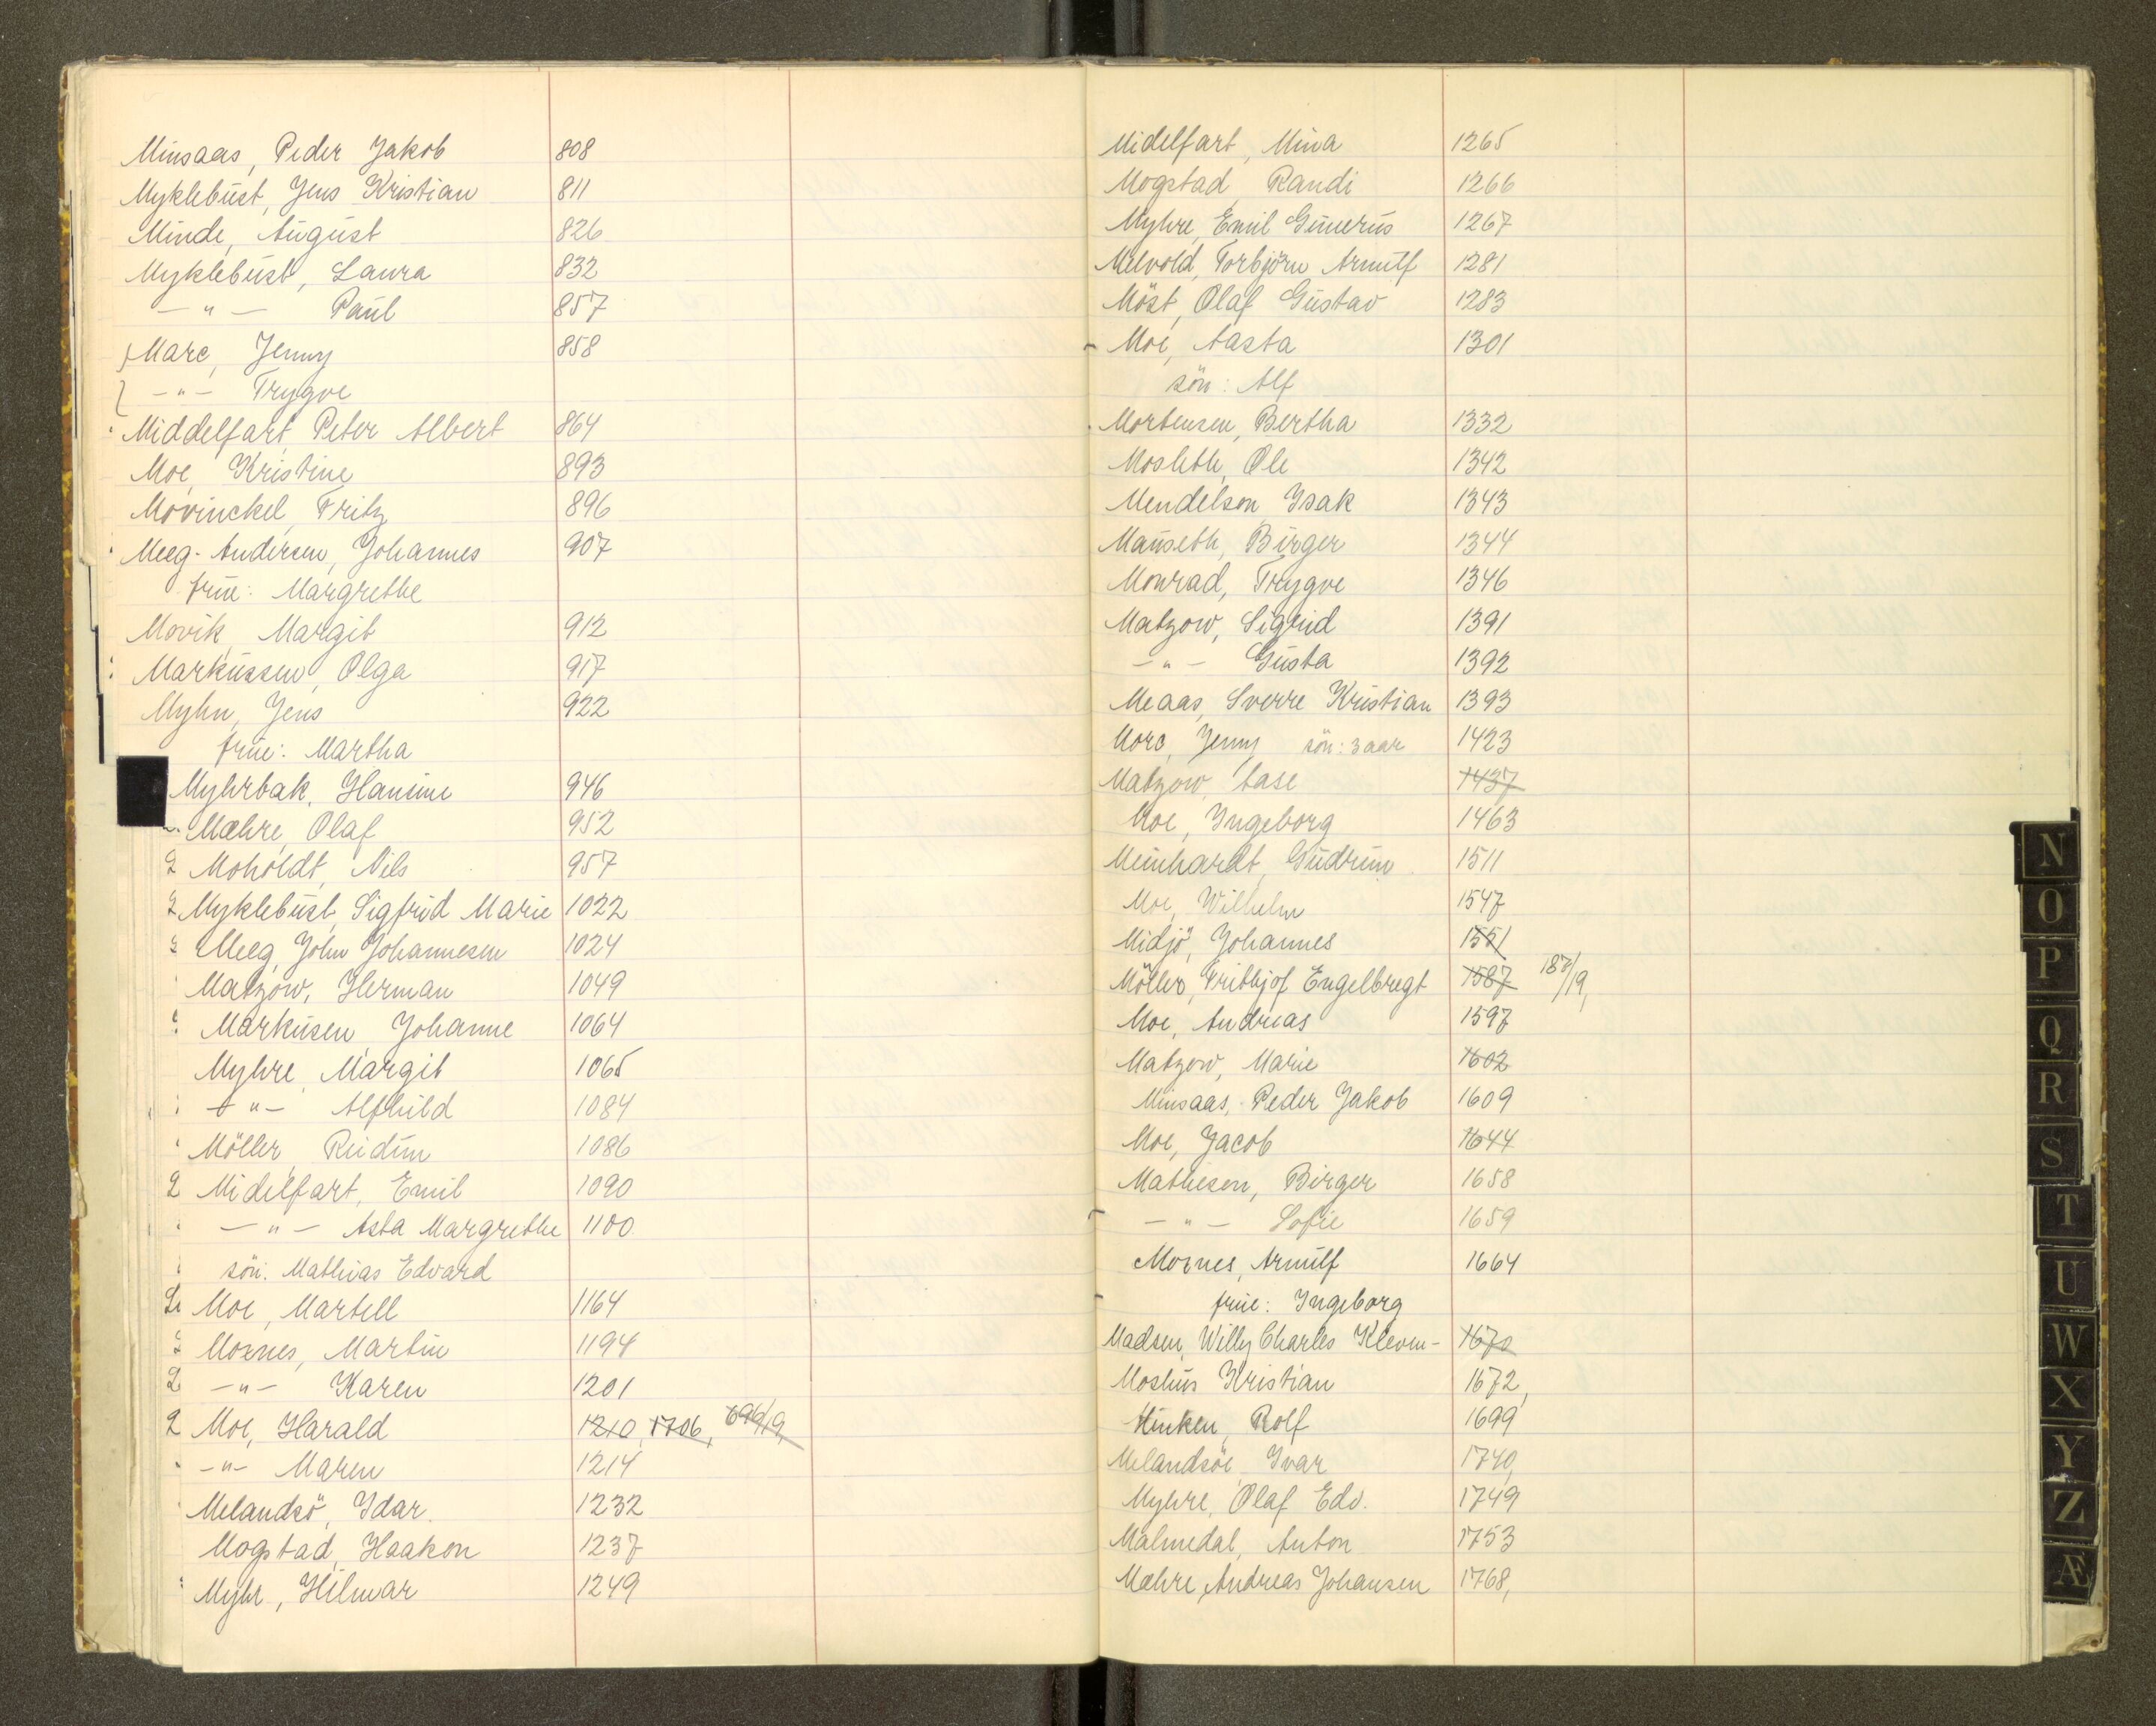 Minsaas, Peder Jakob 808
Myklebust, Jens Kristian 811
Minde, August 826
Myklebust, Laura 832
— " — Paul 857
Marc, Jenny 858
— " — Trygve
Middelfart, Peter Albert 864
Moe, Kristine 893
Movinckel, Fritz 896
Meeg-Andersen, Johannes 907
frue: Margrethe
Movik, Margit 912
Markussen, Olga 917
Myhn, Jens 922
frue: Martha
Myhrbak, Hansine 946
Mæhre, Olaf 952
Moholdt, Nils 957
Myklebust, Sigfrid Marie 1022
Meeg, John Johannesen 1024
Matzow, Herman 1049
Markusen, Johanne 1064
Myhre, Margit 1065
— " — Alfhild 1084
Möller, Reidun 1086
Midelfart, Emil 1090
— " — Asta Margrethe 1100
sön: Mathias Edvard
Moe, Martell 1164
Moxnes, Martin 1194
— " — Karen 1201
Moe, Harald 1210, 1706, 696/19,
— " — Maren 1214
Melandsö, Idar 1232
Mogstad, Haakon 1237
Myhr, Hilmar 1249
Midelfart, Mina 1265
Mogstad, Randi 1266
Myhre, Emil Gunerius 1267
Melvold, Torbjörn Arnulf 1281
Möst, Olaf Gustav 1283
Moe, Aasta 1301
sön: Alf
Mortensen, Bertha 1332
Mosleth, Ole 1342
Mendelson, Isak 1343
Mauseth, Birger 1344
Monrad, Trygve 1346
Matzow, Sigrid 1391
— " — Gusta 1392
Meaas, Sverre Kristian 1393
Marc, Jenny sön: 3 aar 1423
Matzow, Aase 1437
Moe, Ingeborg 1463
Meinhardt, Gudrun 1511
Moe, Wilhelm 1547
Midjö, Johannes 1551
Möller, Frithjof Engelbregt 1587 187/19,
Moe, Andreas 1597
Matzow, Marie 1602
Minsaas, Peder Jakob 1609
Moe, Jacob 1644
Mathiesen, Birger 1658
— " — Sofie 1659
Moxnes, Arnulf 1664
frue: Ingeborg
Madsen, Willy Charles Klevm- 1670
Moshus Kristian 1672,
Minken, Rolf 1699
Melandsöe Ivar 1740,
Myhre, Olaf Edv. 1749
Malmedal, Anton 1753
Mæhre, Andreas Johansen 1768,
N
O
P
Q
R
S
T
U
W
X
Y
Z
Æ